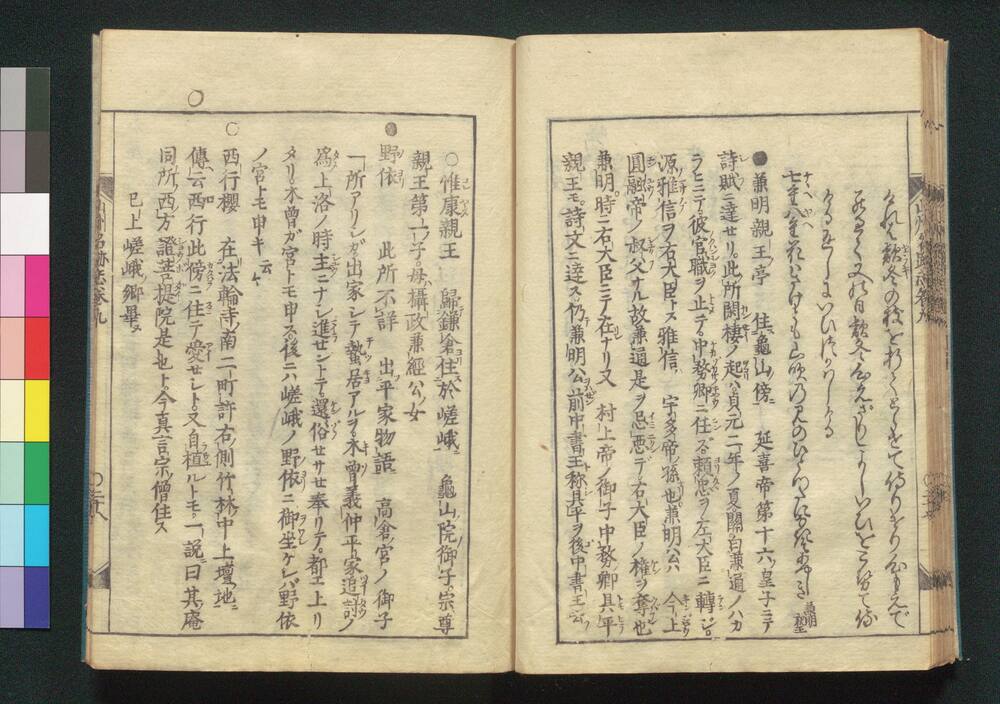 七重八重花はさけとも山吹のみのひとつたになきそあやしき
●兼明親王亭 住龜山傍ニ 延喜帝第十六ノ皇子ニテ
詩賦ニ達セリ。此所閑棲ノ起ハ貞元二年ノ夏關白兼通ノハカ
ラヒニテ。彼官職ヲ止テ。中務卿ニ任ズ。頼忠ヲ左大臣ニ轉ジ。
源雅信ヲ右大臣トス。雅信ハ 宇多帝ノ孫也。兼明公ハ 今上
圓融帝ノ叔父ナル故兼通是ヲ忌悪テ。右大臣ノ權ヲ奪也
兼明。時ニ右大臣ニテ在ナリ又 村上帝ノ御子中務卿具平
親王モ。詩文ニ達ス。仍兼明公ヲ前中書王称具平ヲ後中書王云フ
○惟康親王 歸鎌倉住於嵯峨ニ 龜山ノ院御子宗尊
親王第一ノ子。母ハ攝政兼經公ノ女
●野依 此所不詳 出平家物語ニ 高倉ノ宮ノ御子
一所アリシガ出家シテ蟄居アルヲ。木曽義仲平家追討ノ
為上洛ノ時主ニナシ進セントテ。還俗セサセ奉リテ。都エ上リ
タリ木曽ガ宮トモ申ス。後ニハ嵯峨ノ野依ニ御坐ケレバ野依
ノ宮トモ申キ云々
○西行櫻 在法輪寺南二町許右ノ側竹林中上壇ノ地ニ
傳云西行此傍ニ住テ愛セシト。又自植ルトモ。一説ニ曰其庵
同所ノ西方證菩提院是也ト。今真言宗ノ僧住ス
已上嵯峨ノ郷畢ヌ